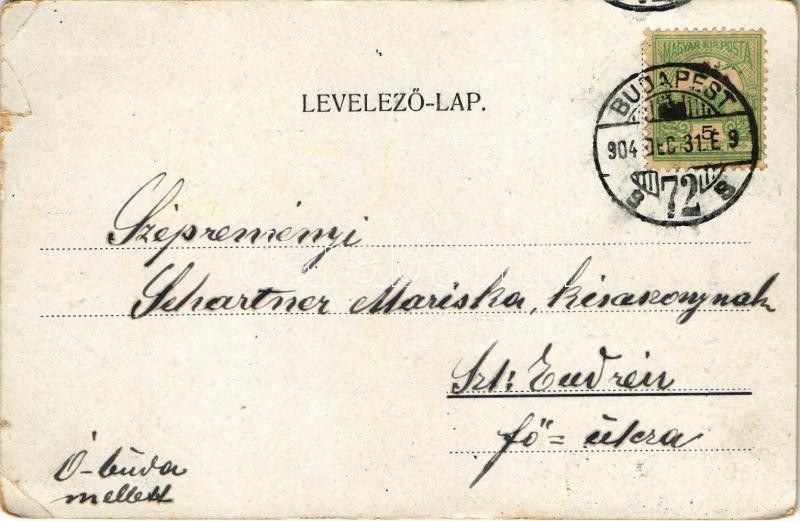 MAGYAR KIR. POSTA
5
BUDAPEST
904 DEC 31. E 9
72
LEVELEZŐ-LAP.
Szépreményi
Schartner Mariska, kisasszonynak
Szt: Endrén
fő = utcza
Ó-buda
mellett